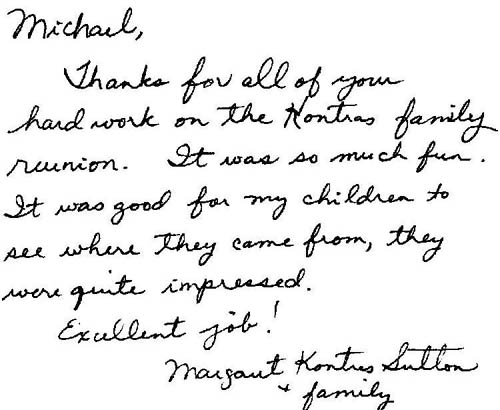 Michael,
Thanks for all of your
hard work on the Kontras family
reunion. It was so much fun.
It was good for my children to
see where they came from, they
were quite impressed.
Excellent job!
Margaret Kontras Sutton
+ family